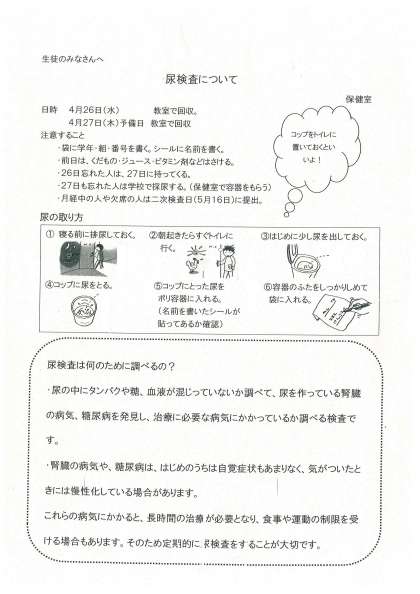 生徒のみなさんへ
尿検査について
保健室
日時　4月26日(水)　教室で回収。
4月27日(木)予備日　教室で回収
注意すること
・袋に学年・組・番号を書く。シールに名前を書く。
・前日は、くだもの・ジュース・ビタミン剤などはさける。
・26日忘れた人は、27日に持ってくる。
・27日も忘れた人は学校で採尿する。(保健室で容器をもらう)
・月経中の人や欠席の人は二次検査日(5月16日)に提出。
コップをトイレに
置いておくとい
いよ！
尿の取り方
① 寝る前に排尿しておく。
②朝起きたらすぐトイレに
行く。
③はじめに少し尿を出しておく。
④コップに尿をとる。
⑤コップにとった尿を
ポリ容器に入れる。
(名前を書いたシールが
貼ってあるか確認)
⑥容器のふたをしっかりしめて
袋に入れる。
尿検査は何のために調べるの？
・尿の中にタンパクや糖、血液が混じっていないか調べて、尿を作っている腎臓
の病気、糖尿病を発見し、治療に必要な病気にかかっているか調べる検査で
す。
・腎臓の病気や、糖尿病は、はじめのうちは自覚症状もあまりなく、気がついたと
きには慢性化している場合があります。
これらの病気にかかると、長時間の治療が必要となり、食事や運動の制限を受
ける場合もあります。そのため定期的に尿検査をすることが大切です。